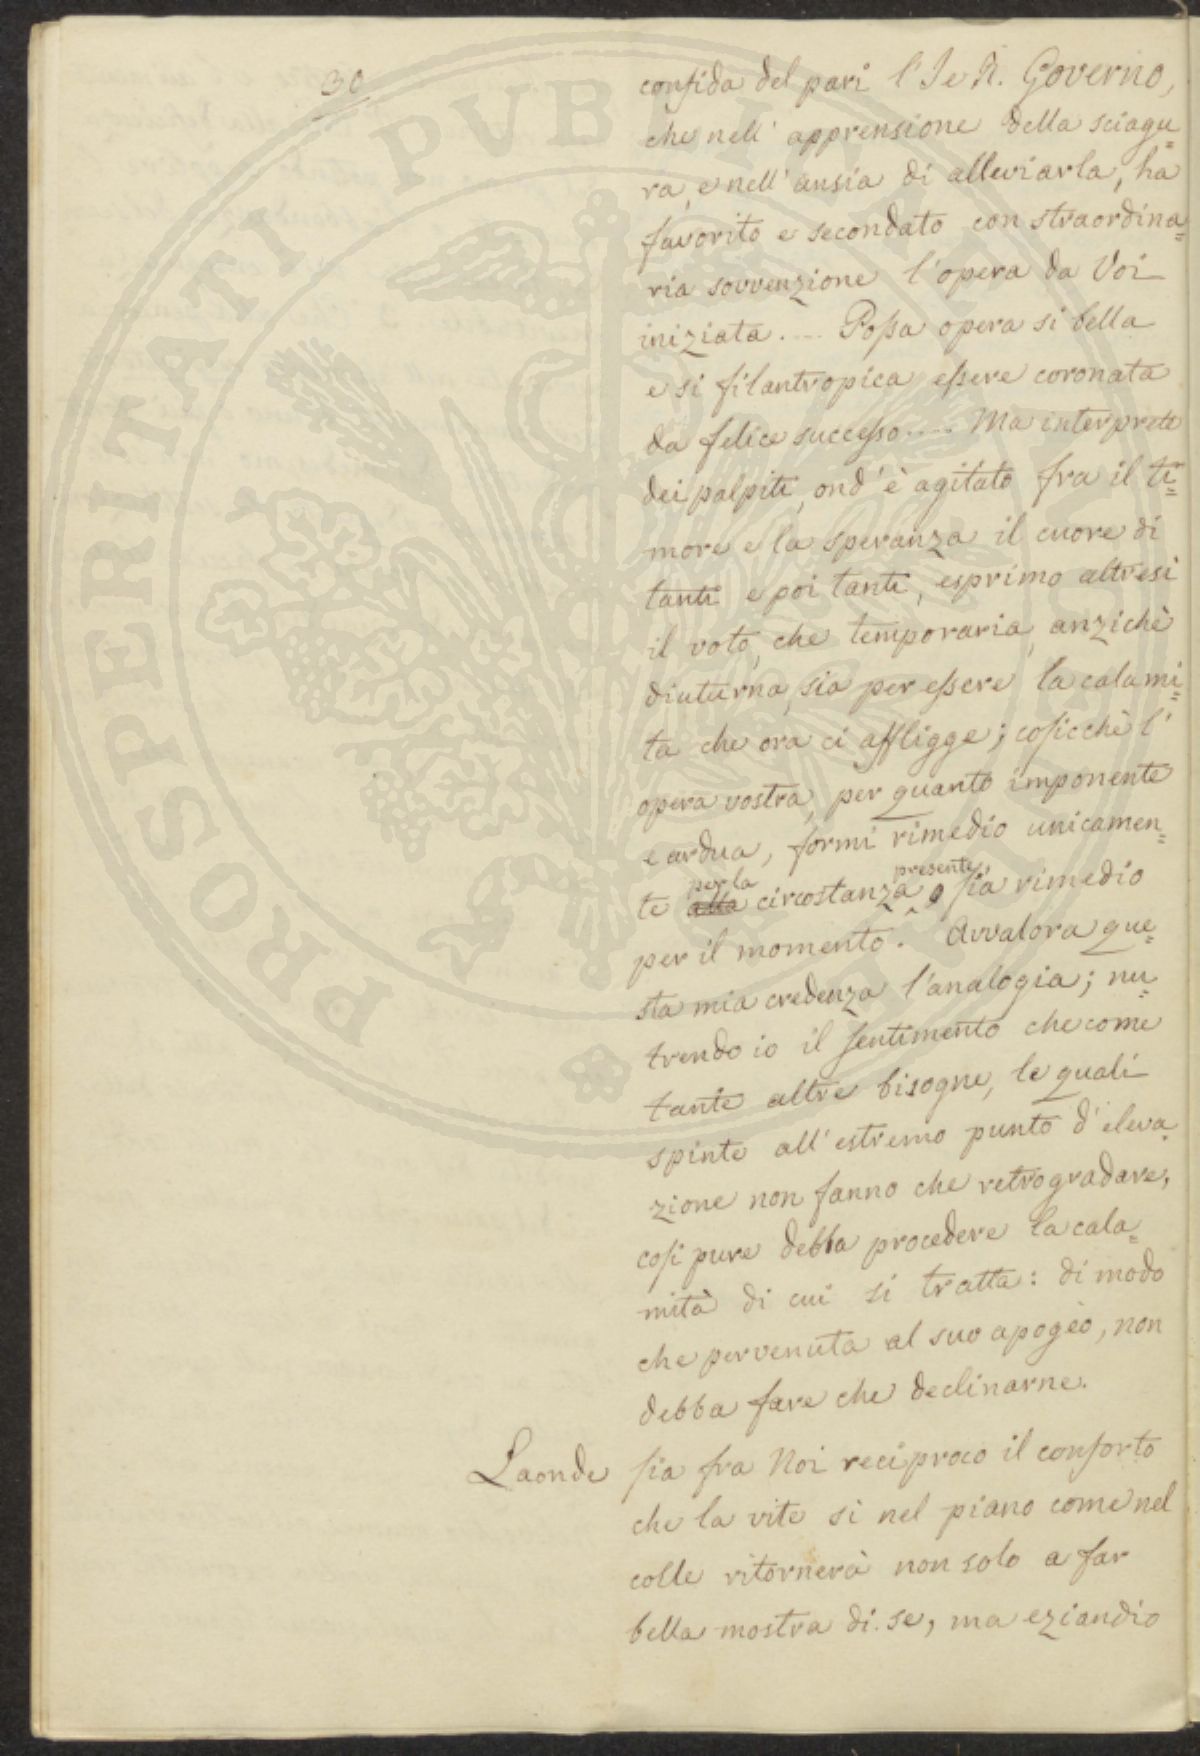 30
confida del pari l'I e R. Governo,
che nell' apprensione della sciagu=
ra, e nell' ansia di alleviarla, ha
favorito e secondato con straordina=
ria sovvenzione l'opera da Voi
iniziata.... Possa opera si bella
e si filantropica essere coronata
da felice successo..... Ma interprete
dei palpiti, ond' è agitato fra il ti=
more e la speranza il cuore di
tanti e poi tanti, esprimo altresì
il voto, che temporaria, anzichè
diuturna, sia per essere la calami=
tà che ora ci affligge; cosicchè l'
opera vostra, per quanto imponente
e ardua, formi rimedio unicamen=
te alla per la circostanza presente, sia rimedio
per il momento. Avvalora que=
sta mia credenza l'analogia; nu=
trendo io il sentimento che come
tante altre bisogne, le quali
spinte all' estremo punto d' eleva=
zione non fanno che retrogradare,
così pure debba procedere la cala=
mità di cui si tratta: di modo
che pervenuta al suo apogèo, non
debba fare che declinarne.
Laonde sia fra Noi reciproco il conforto
che la vite si nel piano come nel
colle ritornerà non solo a far
bella mostra di se, ma eziandio
PROSPERITATI PUBLICAE